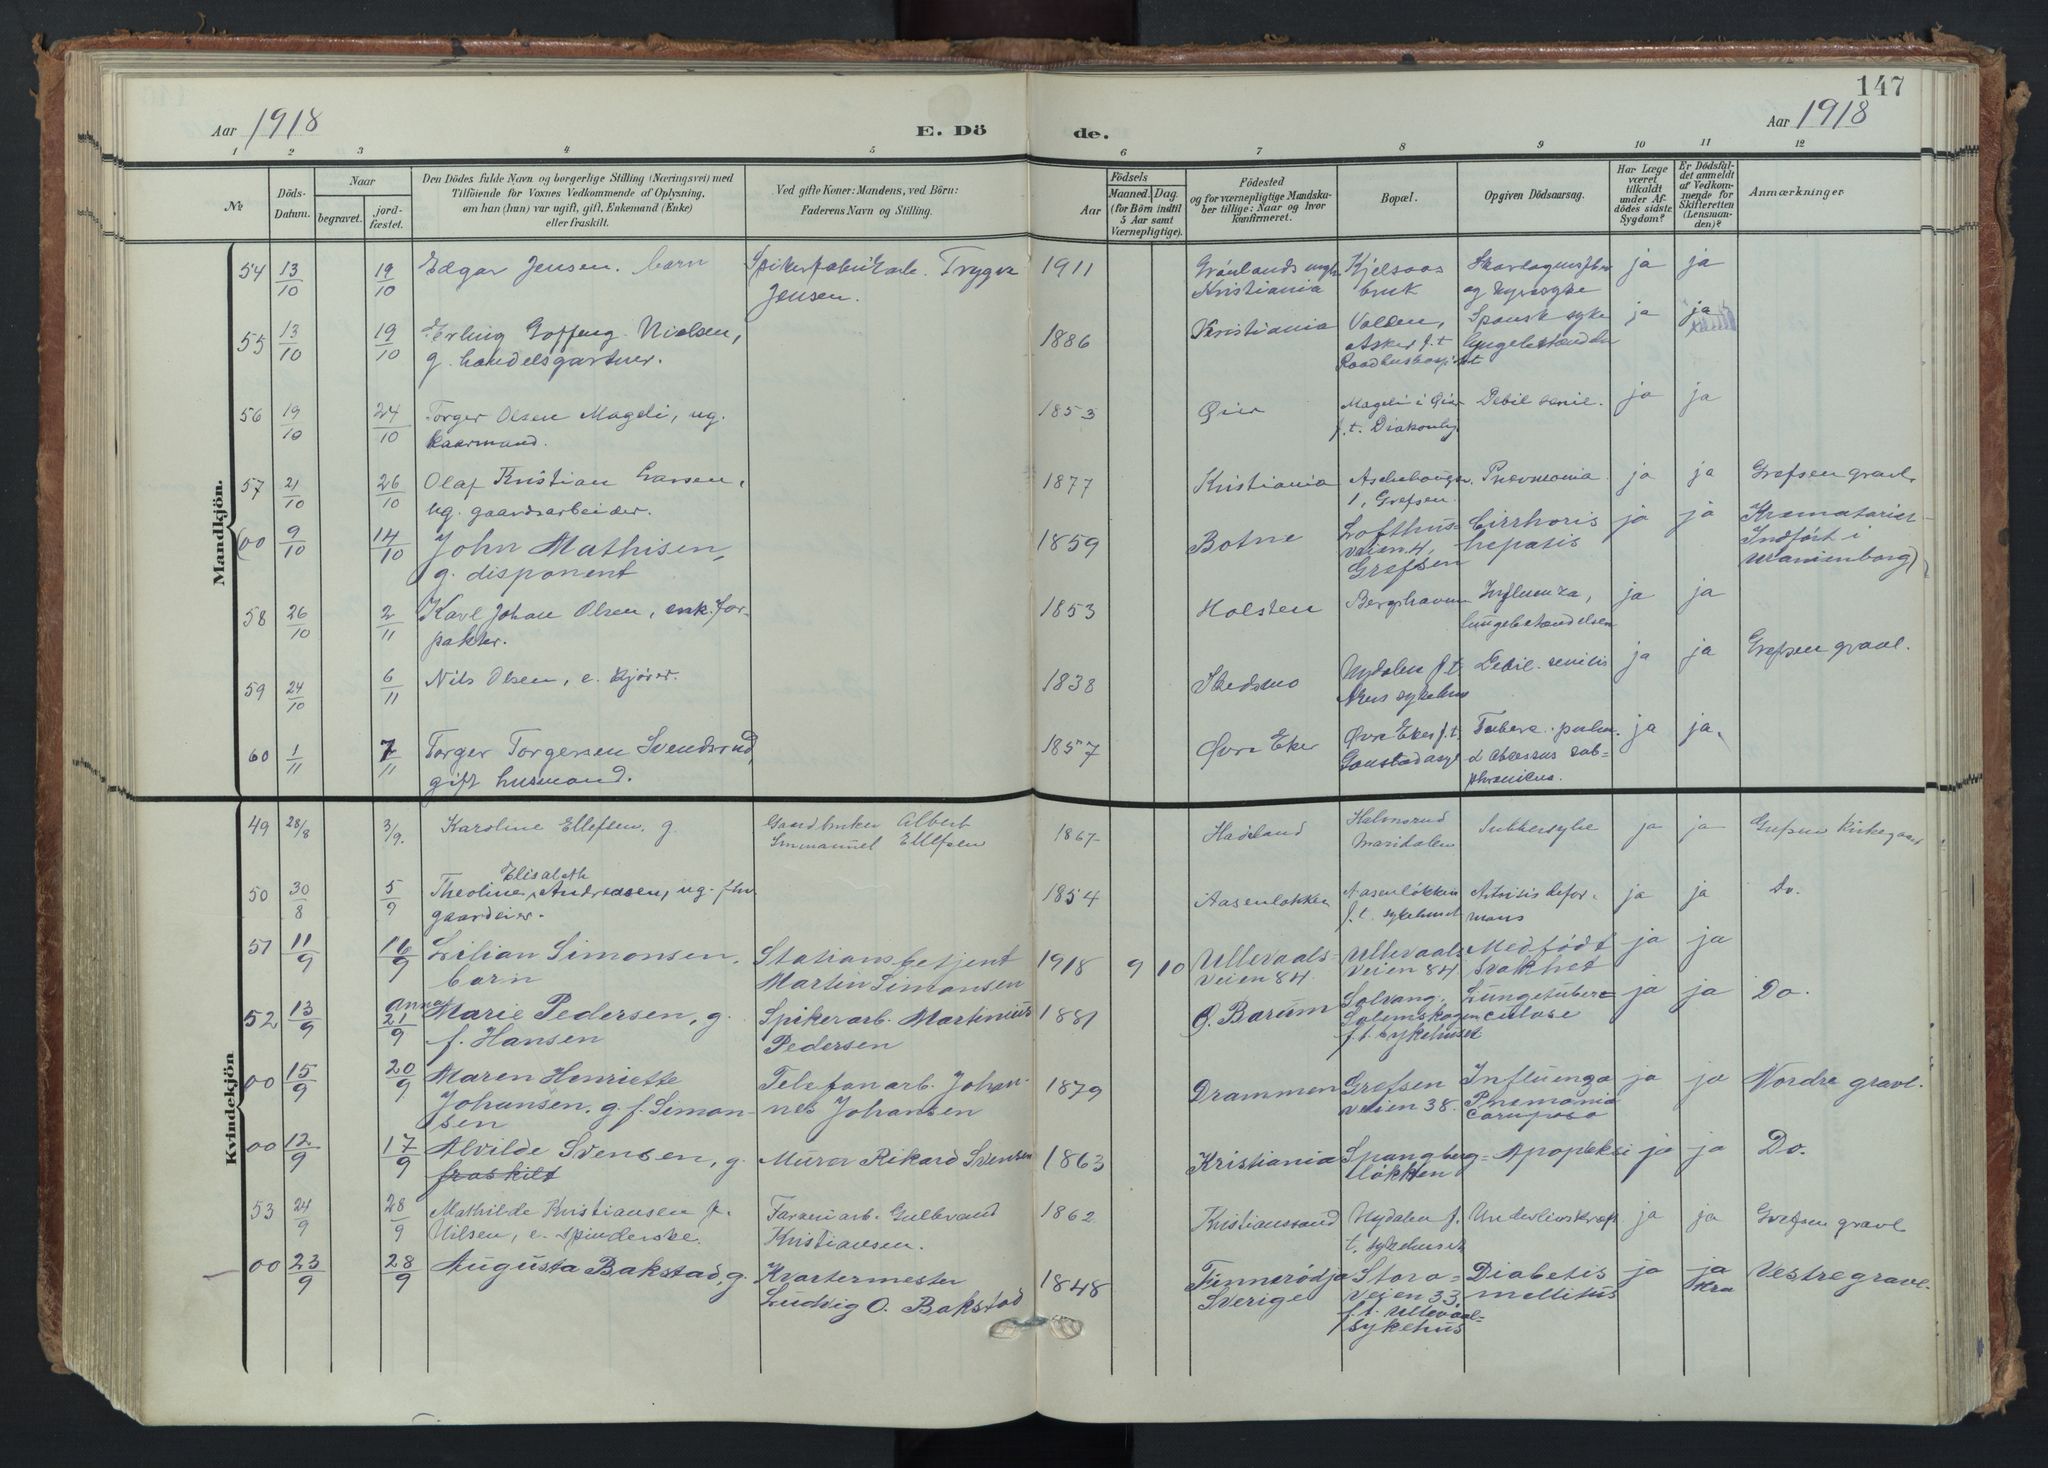 147
Aar 1918
E. Dö
de.
Aar 1918
1 2 3 4 5 6 7 8 9 10 11 12
№
Døds-Datum.
Naar
begravet.
jord-fæstet.
Den Dödes fulde Navn og borgerlige Stilling (Næringsvei) med
Tilföiende for Voxnes Vedkommende af Oplysning,
om han (hun) var ugift, gift, Enkemand (Enke)
eller fraskilt.
Ved gifte Koner: Mandens, ved Börn:
Faderens Navn og Stilling.
Födsels
Aar
Maaned. Dag.
(for Börn indtil
5 Aar samt
Værnepligtige).
Födested
og for værnepligtige Mandska-
ber tillige: Naar og hvor
konfirmeret.
Bopæl.
Opgiven Dödsaarsag.
Har Læge
været
tilkaldt
under Af-
dödes sidste
Sygdom?
Er Dödsfal-
det anmeldt
af Vedkom-
mende for
Skifteretten
(Lensman-
den)?
Anmærkninger
Mandkjön.
54 13/10 19/10 Edgar Jensen. barn Trygve 1911 Grønlands Kjelsaas ja ja
Jensen. Kristiania bruk og nyresyke
55 13/10 19/10 Erling Goffeng Nielsen, 1886 Kristiania Valden, Spansk syke ja ja
g. handelsgartner. Asker f.t.
56 19/10 24/10 Torger Olsen Mageli, ug. 1853 Mageli i Debil senil. ja ja
kaarmand. f.t. Diakonhj
57 21/10 26/10 Olaf Kristian Larsen, 1877 Kristiania Pnevmonia ja ja Grefsen gravl.
ug. gaardsarbeider. 1, Grefsen.
(00 9/10 14/10 John Mathisen, 1859 Botne Lofthus- Cirrhoris ja ja
g. disponent veien 4, hepatis Indført i
Grefsen Uranienborg)
58 26/10 2/11 Karl Johan Olsen, enk. for- 1853 Holsten Berghavn Influenza, ja ja
pakter. lungebetændelse
59 24/10 6/11 Nils Olsen, e. kjører. 1838 Skedsmo Nydalen f.t. Debil. senilis ja ja Grefsen gravl.
Akers sykehus
60 1/11 7/11 Torger Torgersen Svendsrud, 1857 Øvre Eker Øvre Eker f.t. Tuberc. pulm. ja ja.
gift husmand. Gaustad asyl & abcessus sub-
phrenicus.
Kvindekjön
49 28/8 3/9. Karoline Ellefsen, g. Gaardbruker Albert 1867 Hadeland Sukkersyke ja ja
Emmanuel Ellefsen Maridalen
50 30/8 5/9 Elisabeth
Theoline Andreasen, ug. fhv. 1854 Aasenløkken Aasenløkken Artritis defor- ja ja Do.
gaardeier. f.t. sykehuset mans
51 11/9 16/9 Lilian Simonsen, Stationsbetjent 1918 9 10 Ullevaals- Ullevaals- Medfødt ja ja
barn Martin Simonsen veien 84. veien 84 svakhet
52 13/9 21/9 Anna
Marie Pedersen, g. Spikerarb. Martinius 1881 Ø. Bærum Solvang, Lungetuber- ja ja Do.
f. Hansen Pedersen Solemskogen culose
f.t. sykehuset
00 15/9 20/9 Maren Henriette Telefonarb. Johan- 1879 Drammen Grefsen Influenga ja ja Nordre gravl.
Johansen, g. f. Simon- nes Johansen veien 38. Pnemonia
sen
00 12/9 17/9 Alvilde Svensen, g. Murer Rikard Svensen 1863 Kristiania Spangberg= Apopleksi ja ja Do.
fraskilt løkken
53 24/9 28/9 Mathilde Kristiansen f. Farveriarb. Gulbrand 1862 Kristianssand Nydalen f. Underlivskræft ja ja Grefsen gravl
Nilsen, e. spinderske. Kristiansen. t. sykehuset
00 23/9 28/9 Augusta Bakstad, g. Kvartermester 1848 Stora= Diabetis ja ja Vestre gravl.
Ludvig O. Bakstad Sverige veien 33 mellitus Kra
f.t. Ullevaal-
sykehus